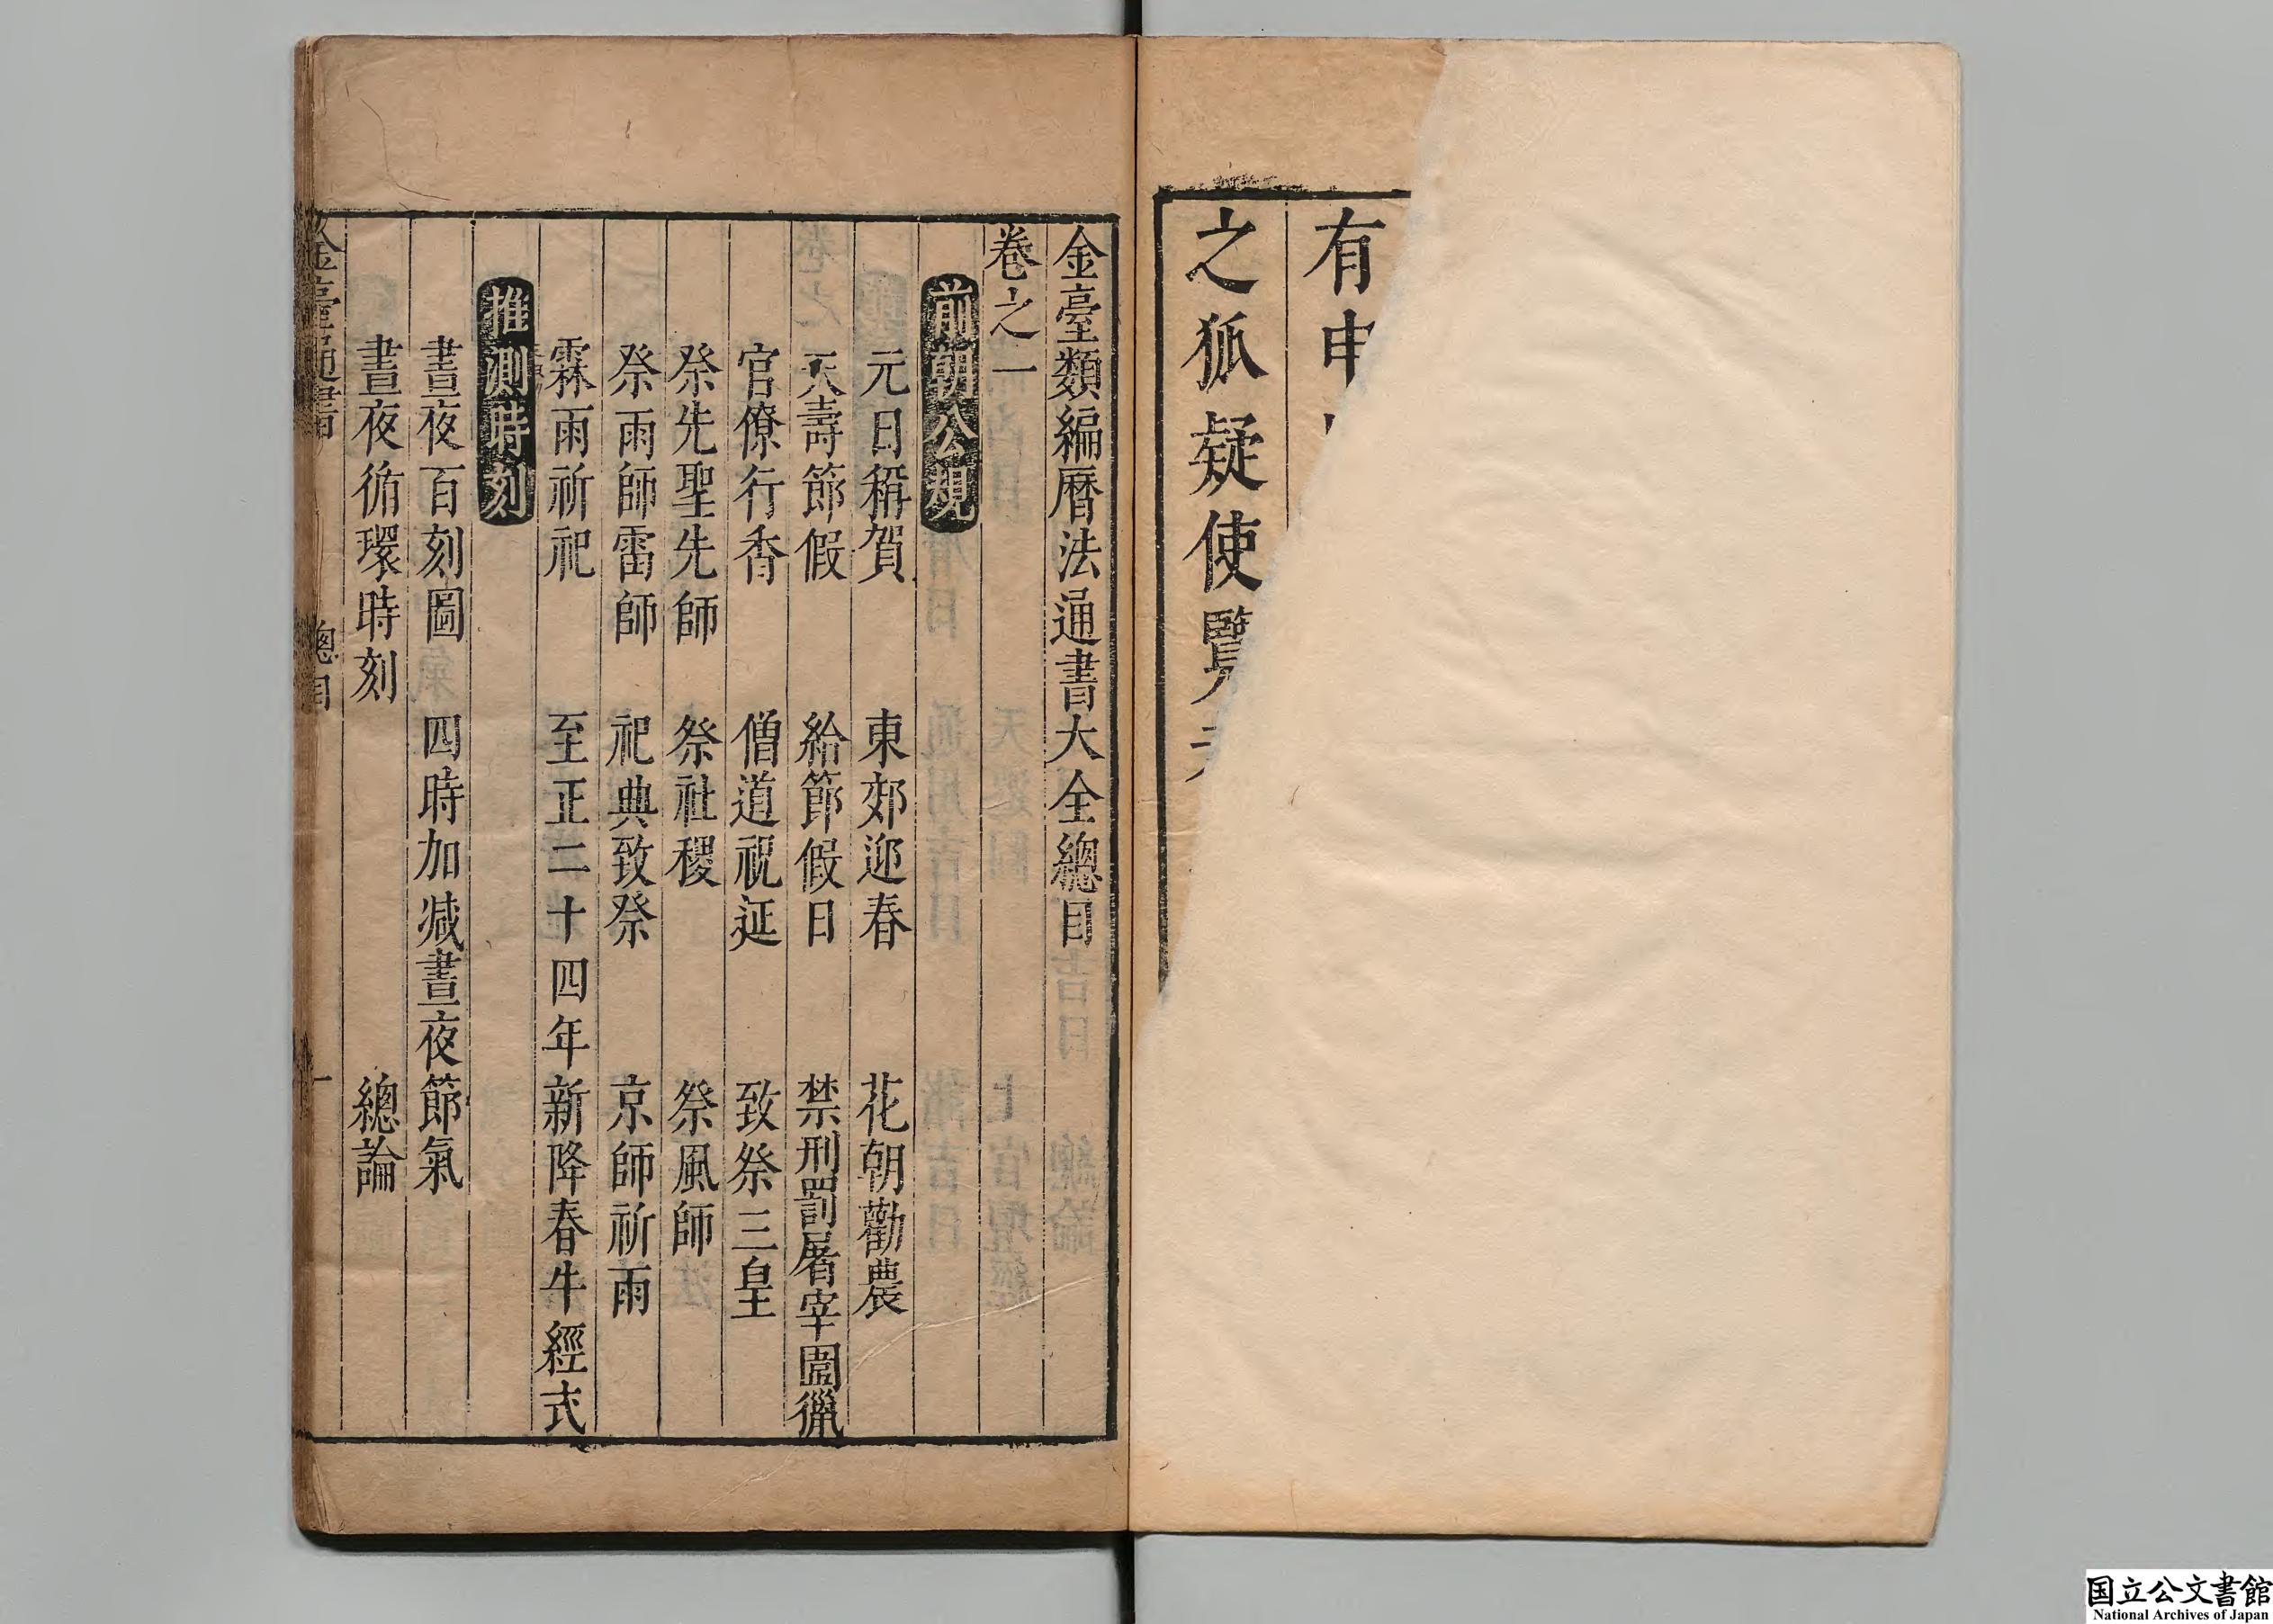 有申
之狐疑使覽
金臺類編曆法通書大全總目
卷之一
前朝公規
元日稱賀　東郊迎春　花朝勸農
天壽節假　給節假日　禁刑罰屠宰圍獵
官僚行香　僧道祝延　致祭三皇
祭先聖先師　祭社稷　祭風師
祭雨師雷師　祀典致祭　京師祈雨
霖雨祈祀　至正二十四年新降春牛經式
推測時刻
晝夜百刻圖　四時加減晝夜節氣
晝夜循環時刻　總論
金臺通書　總目　一
国立公文書館
National Archives of Japan